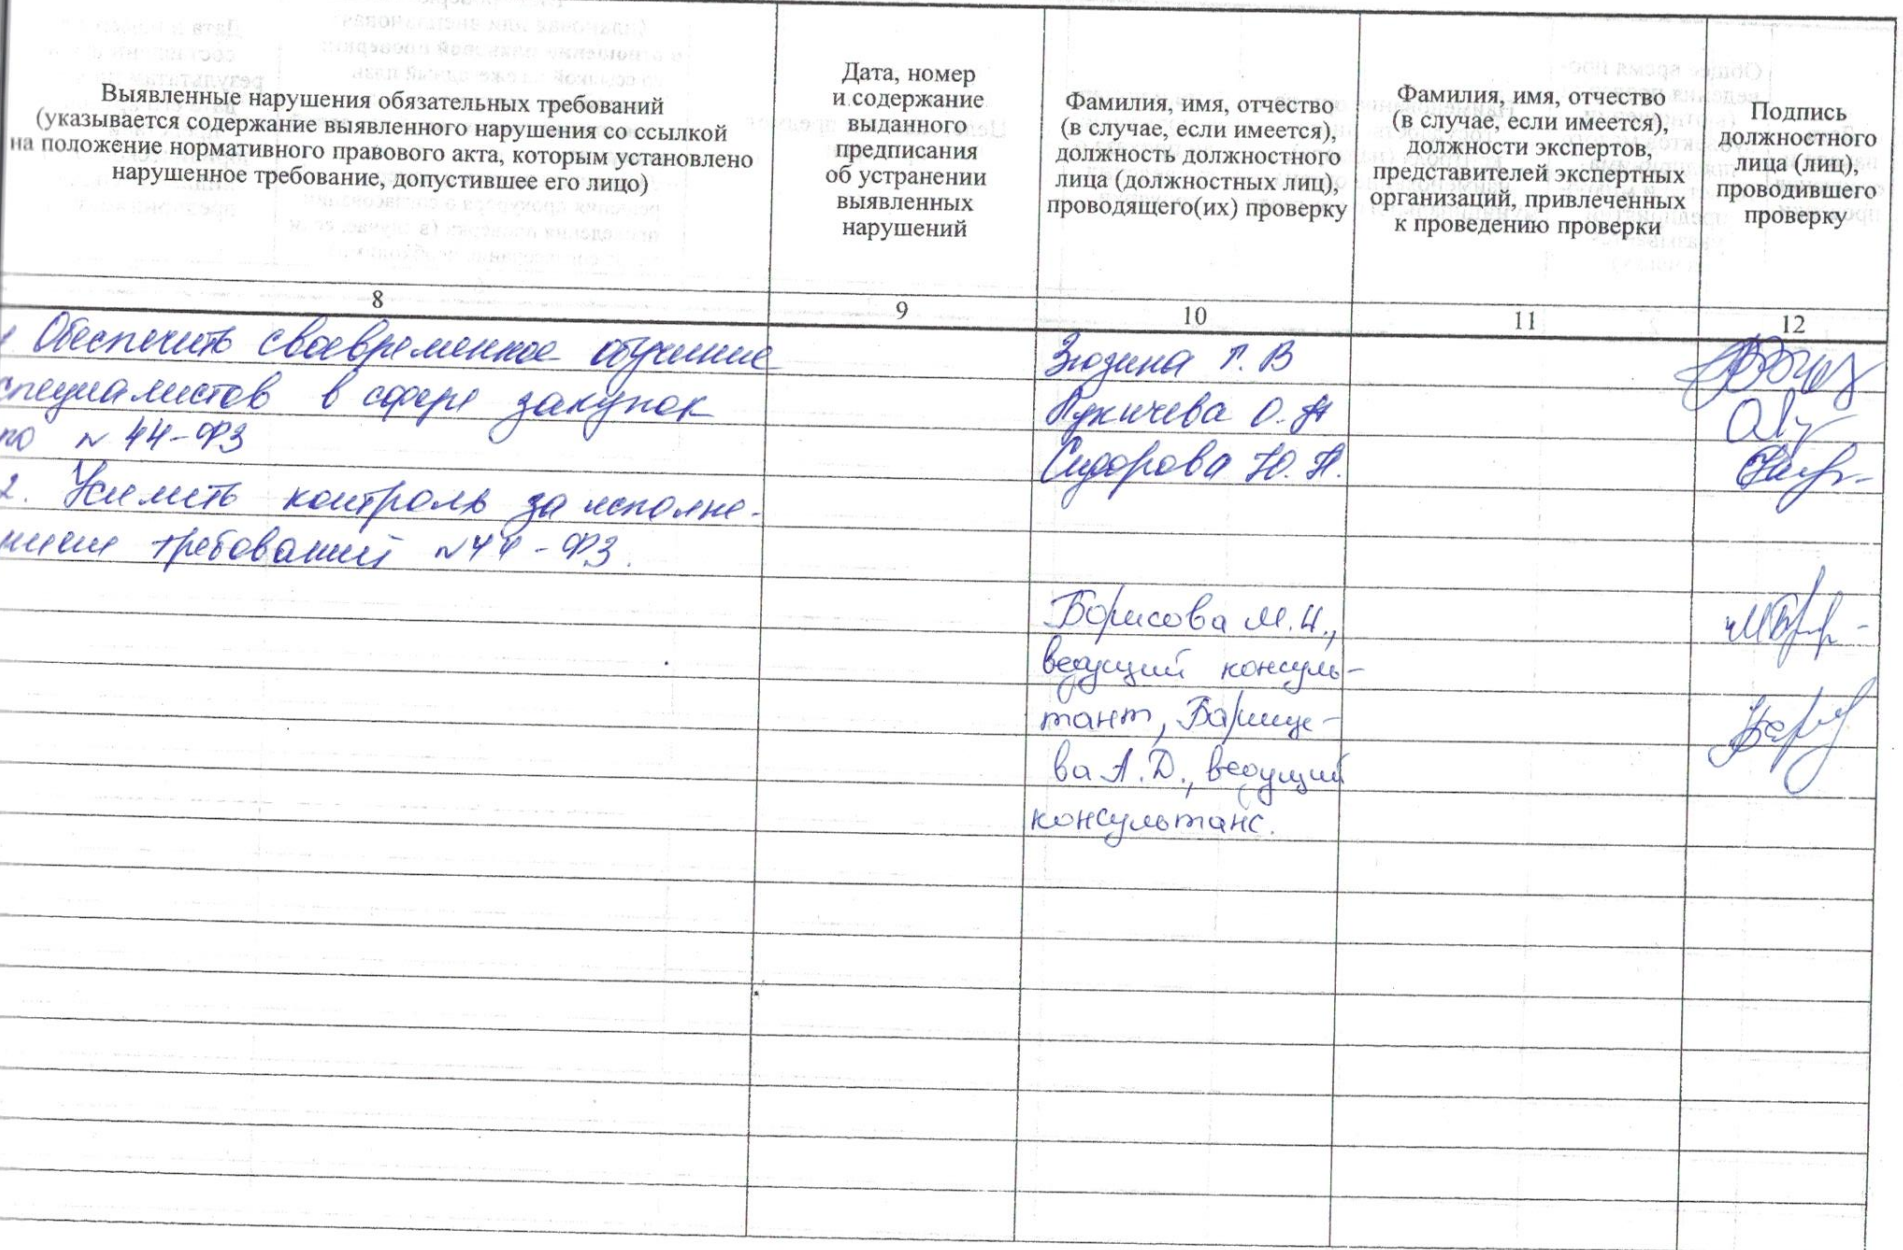 Выявленные нарушения обязательных требований
(указывается содержание выявленного нарушения со ссылкой
на положение нормативного правового акта, которым установлено
нарушенное требование, допустившее его лицо)
Дата, номер
и содержание
выданного
предписания
об устранении
выявленных
нарушений
Фамилия, имя, отчество
(в случае, если имеется),
должность должностного
лица (должностных лиц),
проводящего(их) проверку
Фамилия, имя, отчество
(в случае, если имеется),
должности экспертов,
представителей экспертных
организаций, привлеченных
к проведению проверки
Подпись
должностного
лица (лиц),
проводившего
проверку
8
9
10
11
12
Обеспечить своевременное обучение
специалистов в сфере закупок
по N 44-ФЗ
2. Усилить контроль за исполне-
нием требований N44-ФЗ.
Зюзина Г. В
Лукичева О. Н
Сидорова Ю. Н.
Борисова М.И.,
ведущий консуль-
тант, Барище-
ва А.Д., ведущий
консультант.